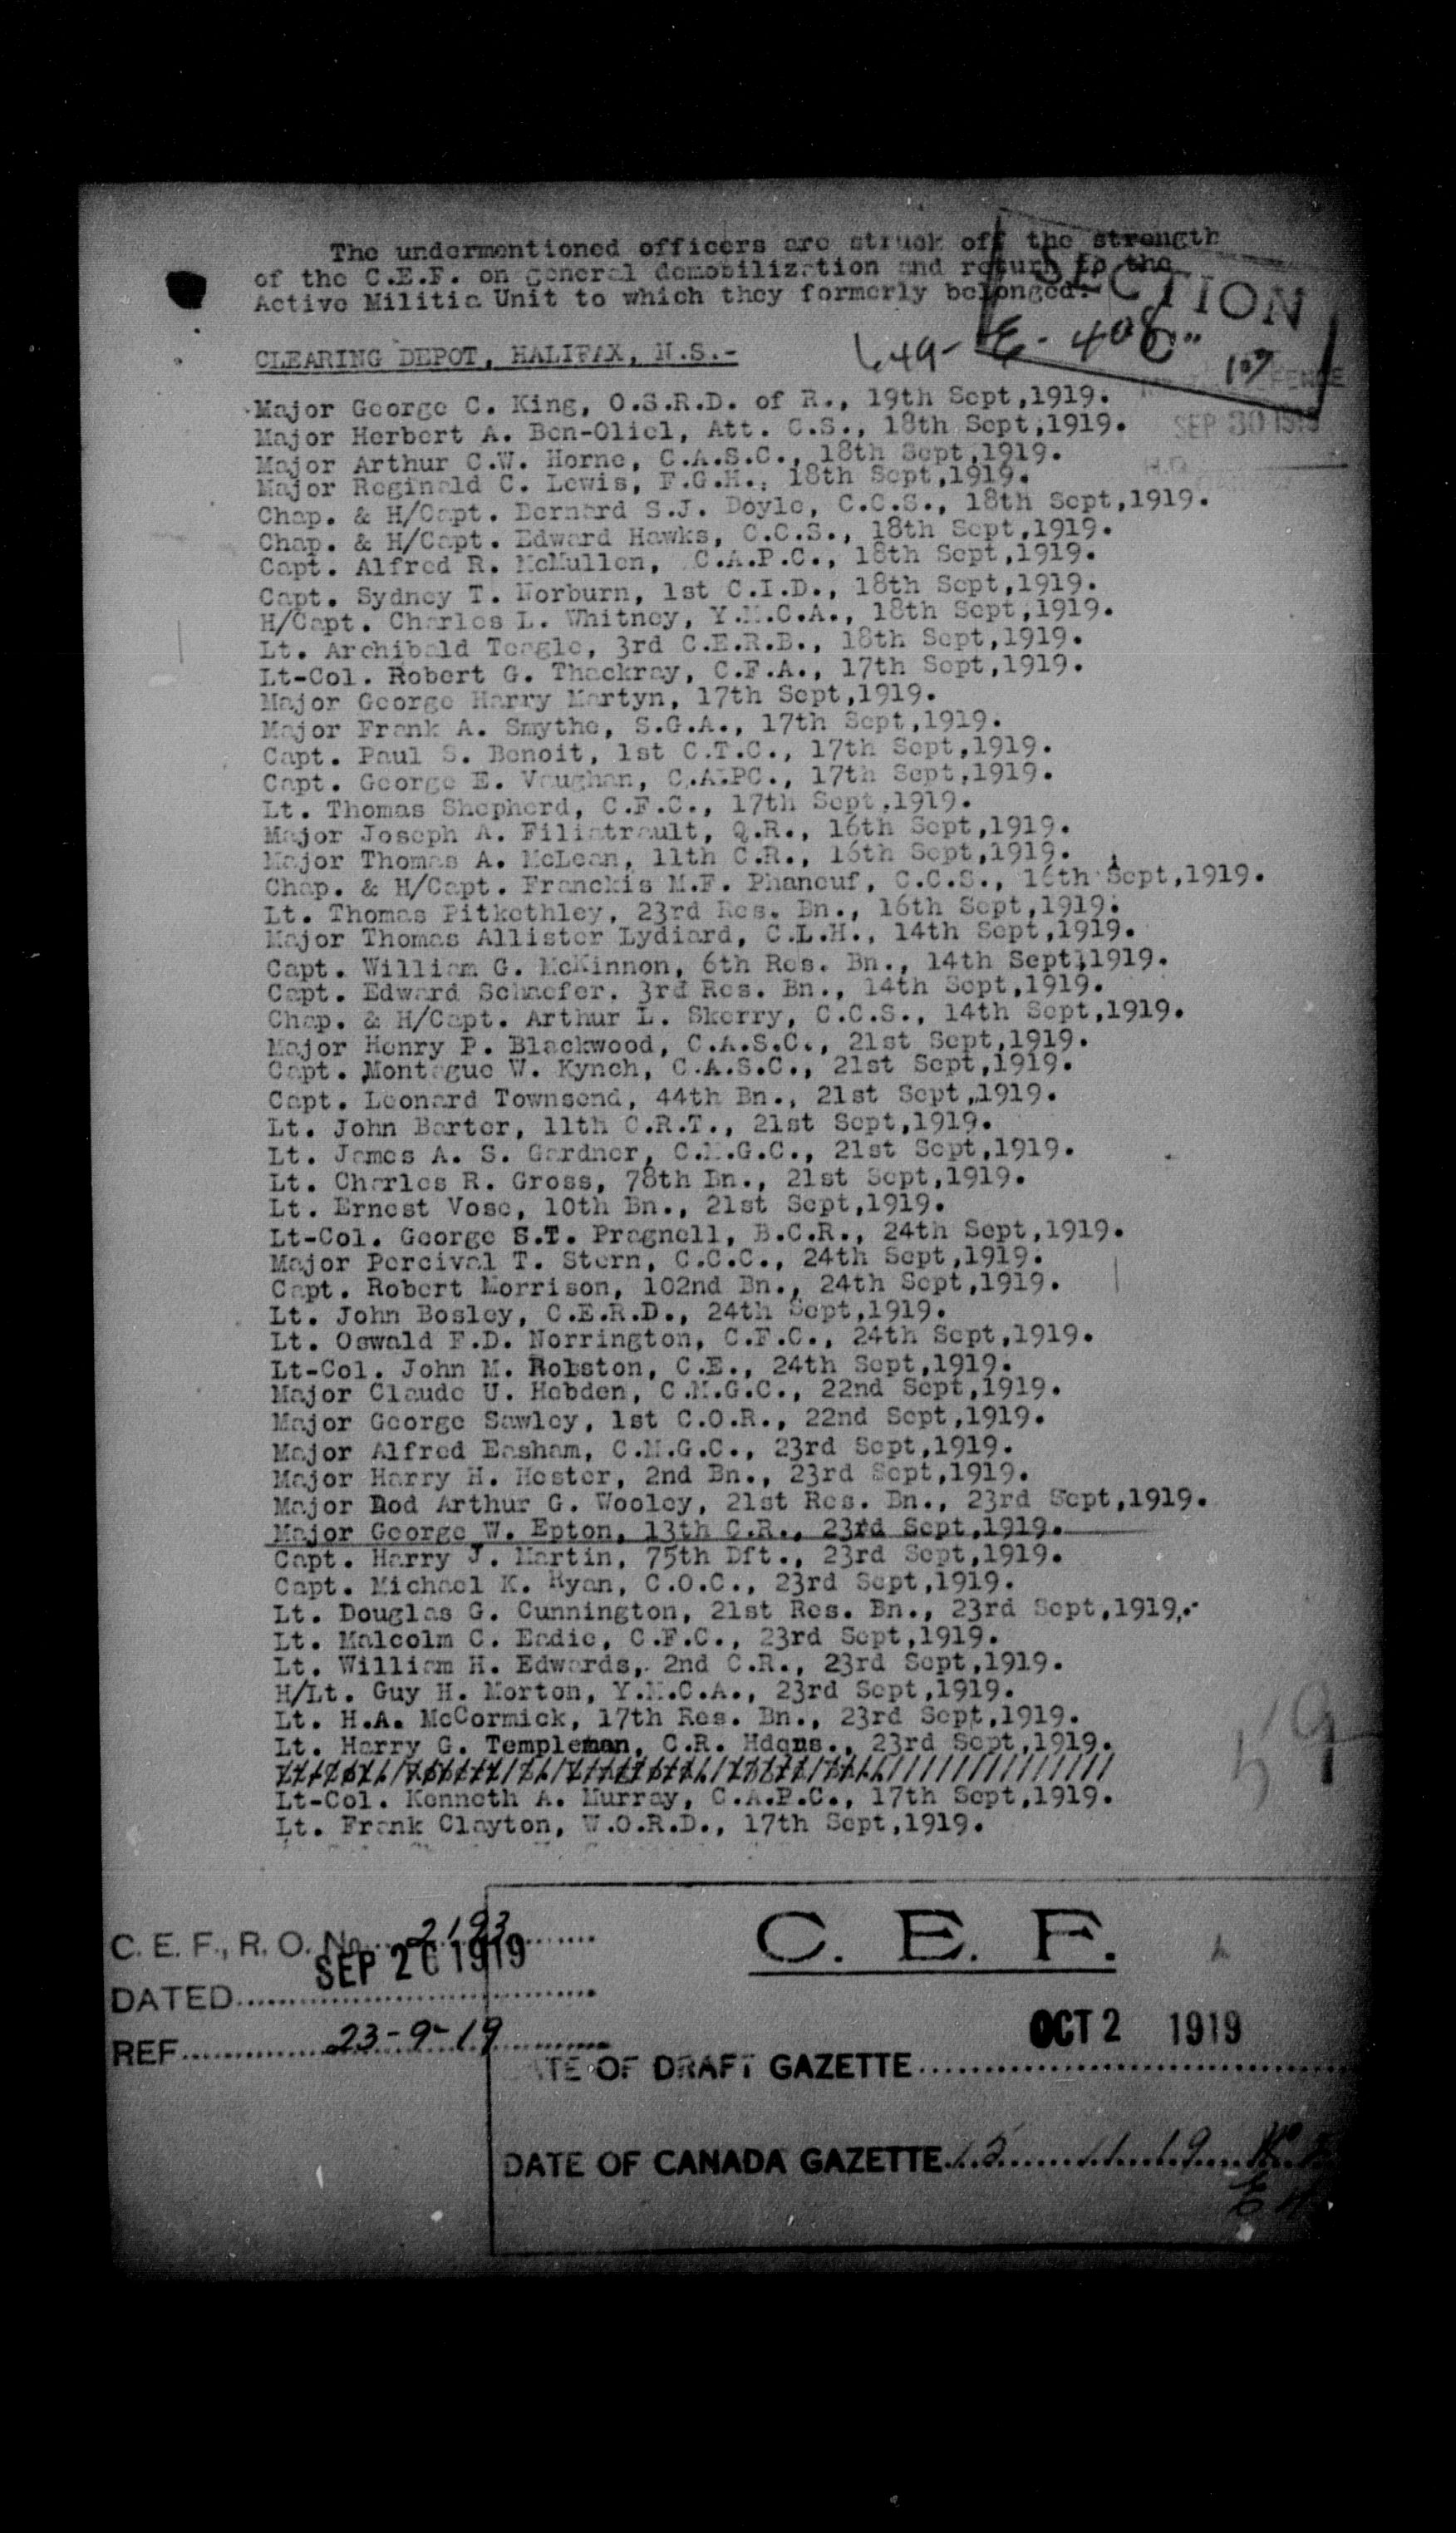 The undermentioned officers are struck off the strength
of the C.E.F. on general demobilization and return to the
Active Militia Unit to which they formerly belonged.
SECTION
649-E-408
CLEARING DEPOT, HALIFAX, N.S.-
SEP 30 1919
Major George C. King, O.S.R.D. of R., 19th Sept,1919.
Major Herbert A. Ben-Oliel, Att. C.S., 18th Sept,1919.
Major Arthur C.W. Horne, C.A.S.C., 18th Sept,1919.
Major Reginald C. Lewis, F.G.H., 18th Sept,1919.
Chap. & H/Capt. Bernard S.J. Doyle, C.C.S., 18th Sept,1919.
Chap. & H/Capt. Edward Hawks, C.C.S., 18th Sept,1919.
Capt. Alfred R. McMullen, C.A.P.C., 18th Sept,1919.
Capt. Sydney T. Norburn, 1st C.I.D., 18th Sept,1919.
H/Capt. Charles L. Whitney, Y.M.C.A., 18th Sept,1919.
Lt. Archibald Teagle, 3rd C.E.R.B., 18th Sept,1919.
Lt-Col. Robert G. Thackray, C.F.A., 17th Sept,1919.
Major George Harry Martyn, 17th Sept,1919.
Major Frank A. Smythe, S.G.A., 17th Sept,1919.
Capt. Paul S. Benoit, 1st C.T.C., 17th Sept,1919.
Capt. George E. Vaughan, C.A.PC., 17th Sept,1919.
Lt. Thomas Shepherd, C.F.C., 17th Sept,1919.
Major Joseph A. Filiatrault, Q.R., 16th Sept,1919.
Major Thomas A. McLean, 11th C.R., 16th Sept,1919.
Chap. & H/Capt. Franckis M.F. Phaneuf, C.C.S., 16th Sept,1919.
Lt. Thomas Pitkethley, 23rd Res. Bn., 16th Sept,1919.
Major Thomas Allister Lydiard, C.L.H., 14th Sept,1919.
Capt. William G. McKinnon, 6th Res. Bn., 14th Sept,1919.
Capt. Edward Schaefer, 3rd Res. Bn., 14th Sept,1919.
Chap. & H/Capt. Arthur L. Skerry, C.C.S., 14th Sept,1919.
Major Henry P. Blackwood, C.A.S.C., 21st Sept,1919.
Capt. Montague W. Kynch, C.A.S.C., 21st Sept,1919.
Capt. Leonard Townsend, 44th Bn., 21st Sept,1919.
Lt. John Barter, 11th C.R.T., 21st Sept,1919.
Lt. James A. S. Gardner, C.M.G.C., 21st Sept,1919.
Lt. Charles R. Gross, 78th Bn., 21st Sept,1919.
Lt. Ernest Vose, 10th Bn., 21st Sept,1919.
Lt-Col. George S.T. Pragnell, B.C.R., 24th Sept,1919.
Major Percival T. Stern, C.C.C., 24th Sept,1919.
Capt. Robert Morrison, 102nd Bn., 24th Sept,1919.
Lt. John Bosley, C.E.R.D., 24th Sept,1919.
Lt. Oswald F.D. Norrington, C.F.C., 24th Sept,1919.
Lt-Col. John M. Rolston, C.E., 24th Sept,1919.
Major Claude U. Hebden, C.M.G.C., 22nd Sept,1919.
Major George Sawley, 1st C.O.R., 22nd Sept,1919.
Major Alfred Easham, C.M.G.C., 23rd Sept,1919.
Major Harry H. Hester, 2nd Bn., 23rd Sept,1919.
Major Rod Arthur G. Wooley, 21st Res. Bn., 23rd Sept,1919.
Major George W. Epton, 13th C.R., 23rd Sept,1919.
Capt. Harry J. Martin, 75th Dft., 23rd Sept,1919.
Capt. Michael K. Ryan, C.O.C., 23rd Sept,1919.
Lt. Douglas G. Cunnington, 21st Res. Bn., 23rd Sept,1919.
Lt. Malcolm C. Eadie, C.F.C., 23rd Sept,1919.
Lt. William H. Edwards, 2nd C.R., 23rd Sept,1919.
H/Lt. Guy H. Morton, Y.M.C.A., 23rd Sept,1919.
Lt. H.A. McCormick, 17th Res. Bn., 23rd Sept,1919.
Lt. Harry G. Templeman, C.R. Hdqns., 23rd Sept,1919.
Lt-Col. Kenneth A. Murray, C.A.P.C., 17th Sept,1919.
Lt. Frank Clayton, W.O.R.D., 17th Sept,1919.
C. E. F., R. O. No. 2193
DATED SEP 26 1919
REF 23-9-19
C. E. F.
OCT 2 1919
DATE OF DRAFT GAZETTE
DATE OF CANADA GAZETTE 15 11 19